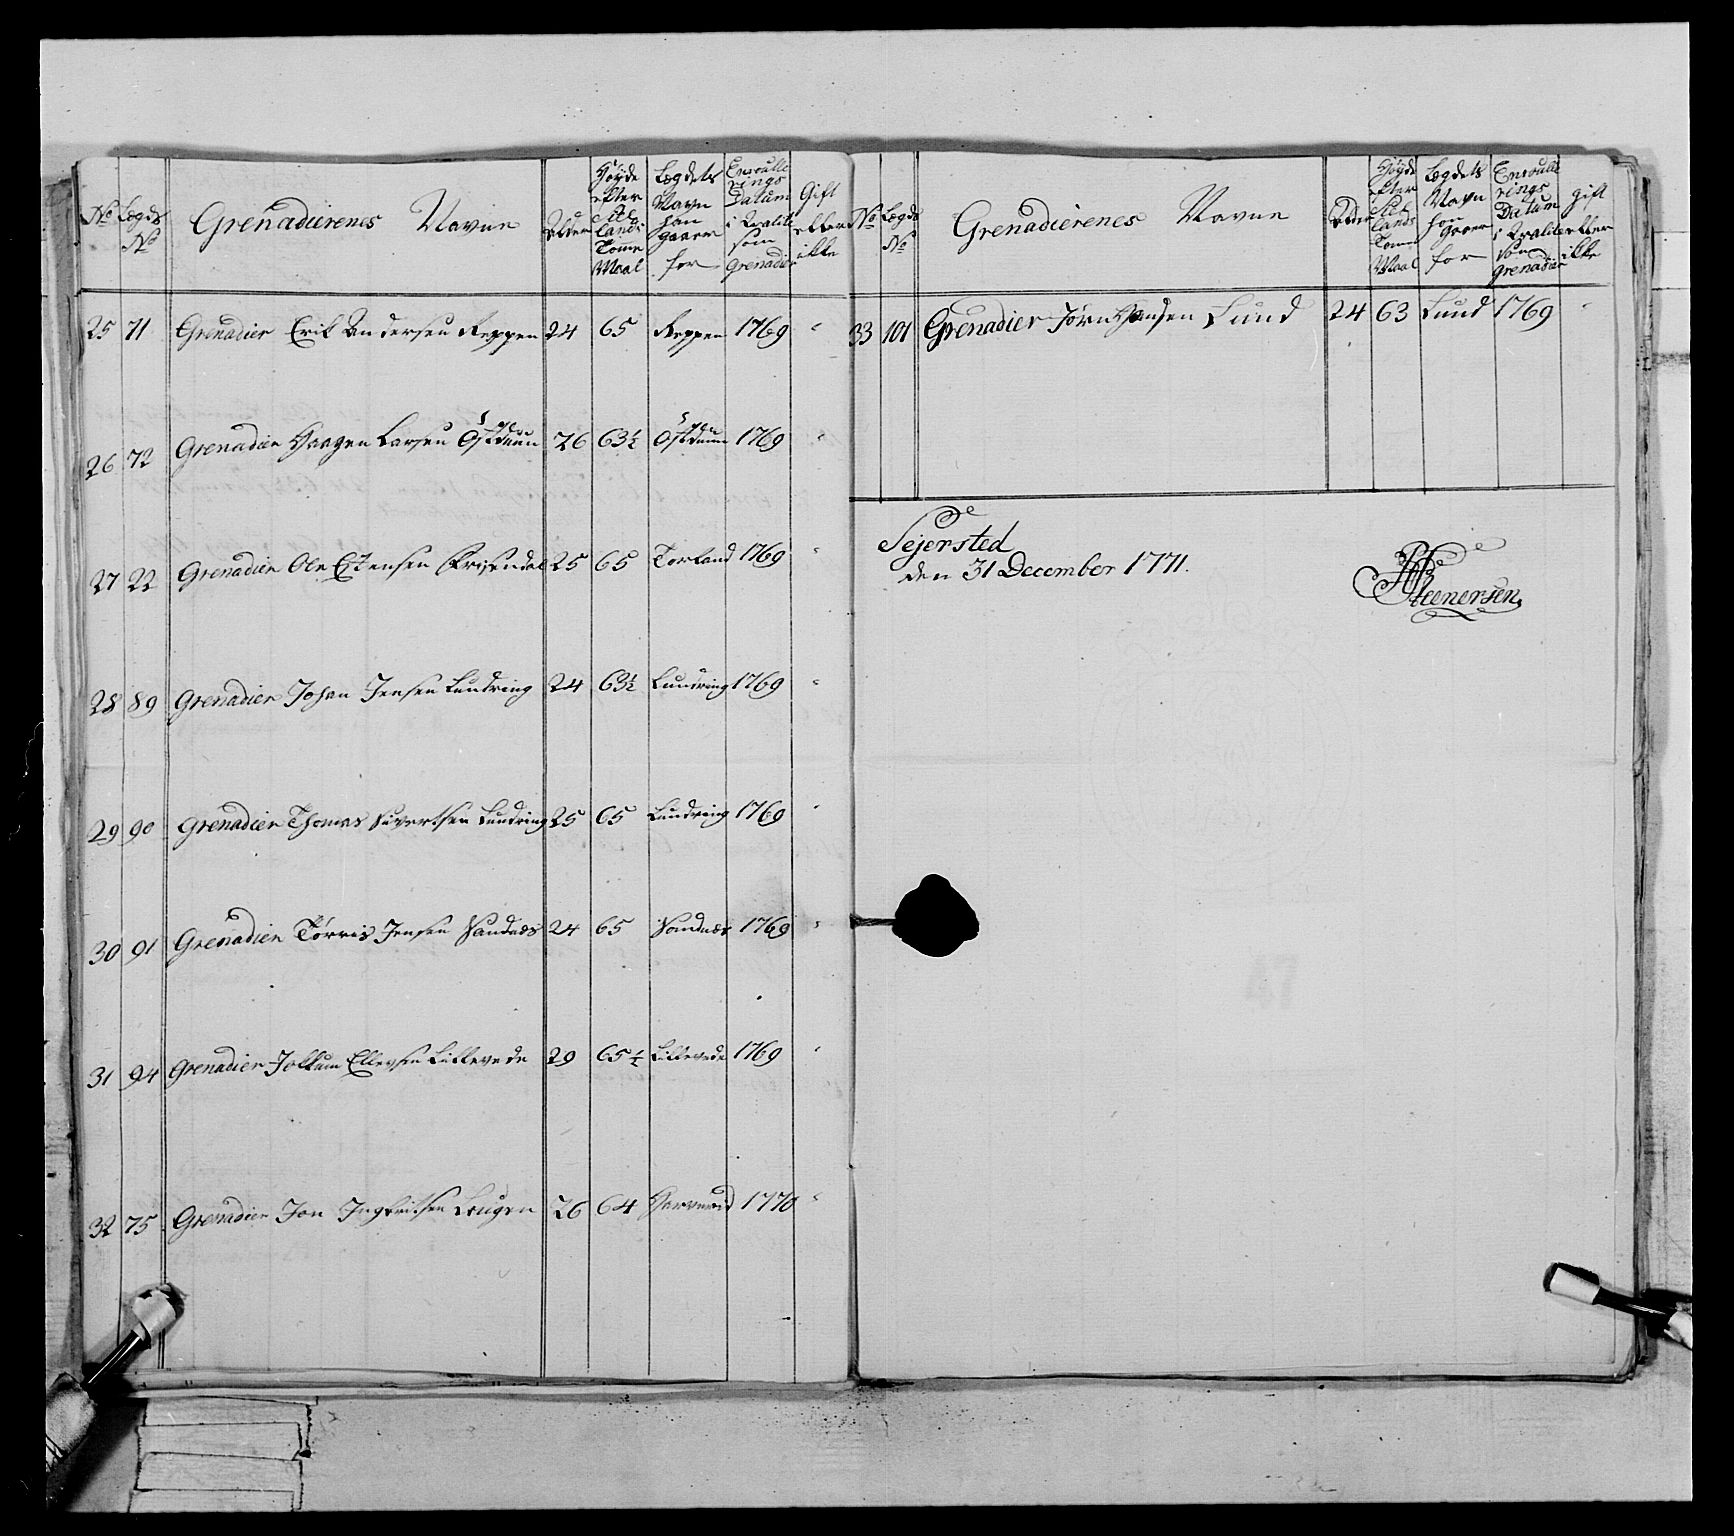 No Lægds No Grenadierenes Navne Alder Høyde efter Siel lands Tomme Maal Lægdets Navn han gaaer for Enroulle rings Datum i Qvalite som Grenadier Gift eller ikke
25 71 Grenadier Erik Andersen Reppen 24 65 Reppen 1769 "
26 72 Grenadier Haagen Larsen 26 63½ 1769 "
27 22 Grenadier Ole 25 65 Torland 1769 "
28 89 Grenadier Johan Jensen Lundring 24 63½ Lundring 1769 "
29 90 Grenadier Thomas Sivertsen Lundring 25 65 Lundring 1769 "
30 91 Grenadier Tørris Jensen Sandnæs 24 65 Sandnæs 1769 "
31 94 Grenadier Jokum Ellevsen Lillevede 29 65½ Lillevede 1769 "
32 75 Grenadier Jon Ingbritsen Haugen 26 64 1770 "
No Lægds No Grenadierenes Navne Alder Høyde efter Siel lands Tomme Maal Lægdets Navn han gaaer for Enroulle rings Datum i Qvalite som Grenadier gift eller ikke
33 101 Grenadier Jørn Hansen Lund 24 63 Lund 1769 "
Sejersted
den 31 December 1771.
Steenersen